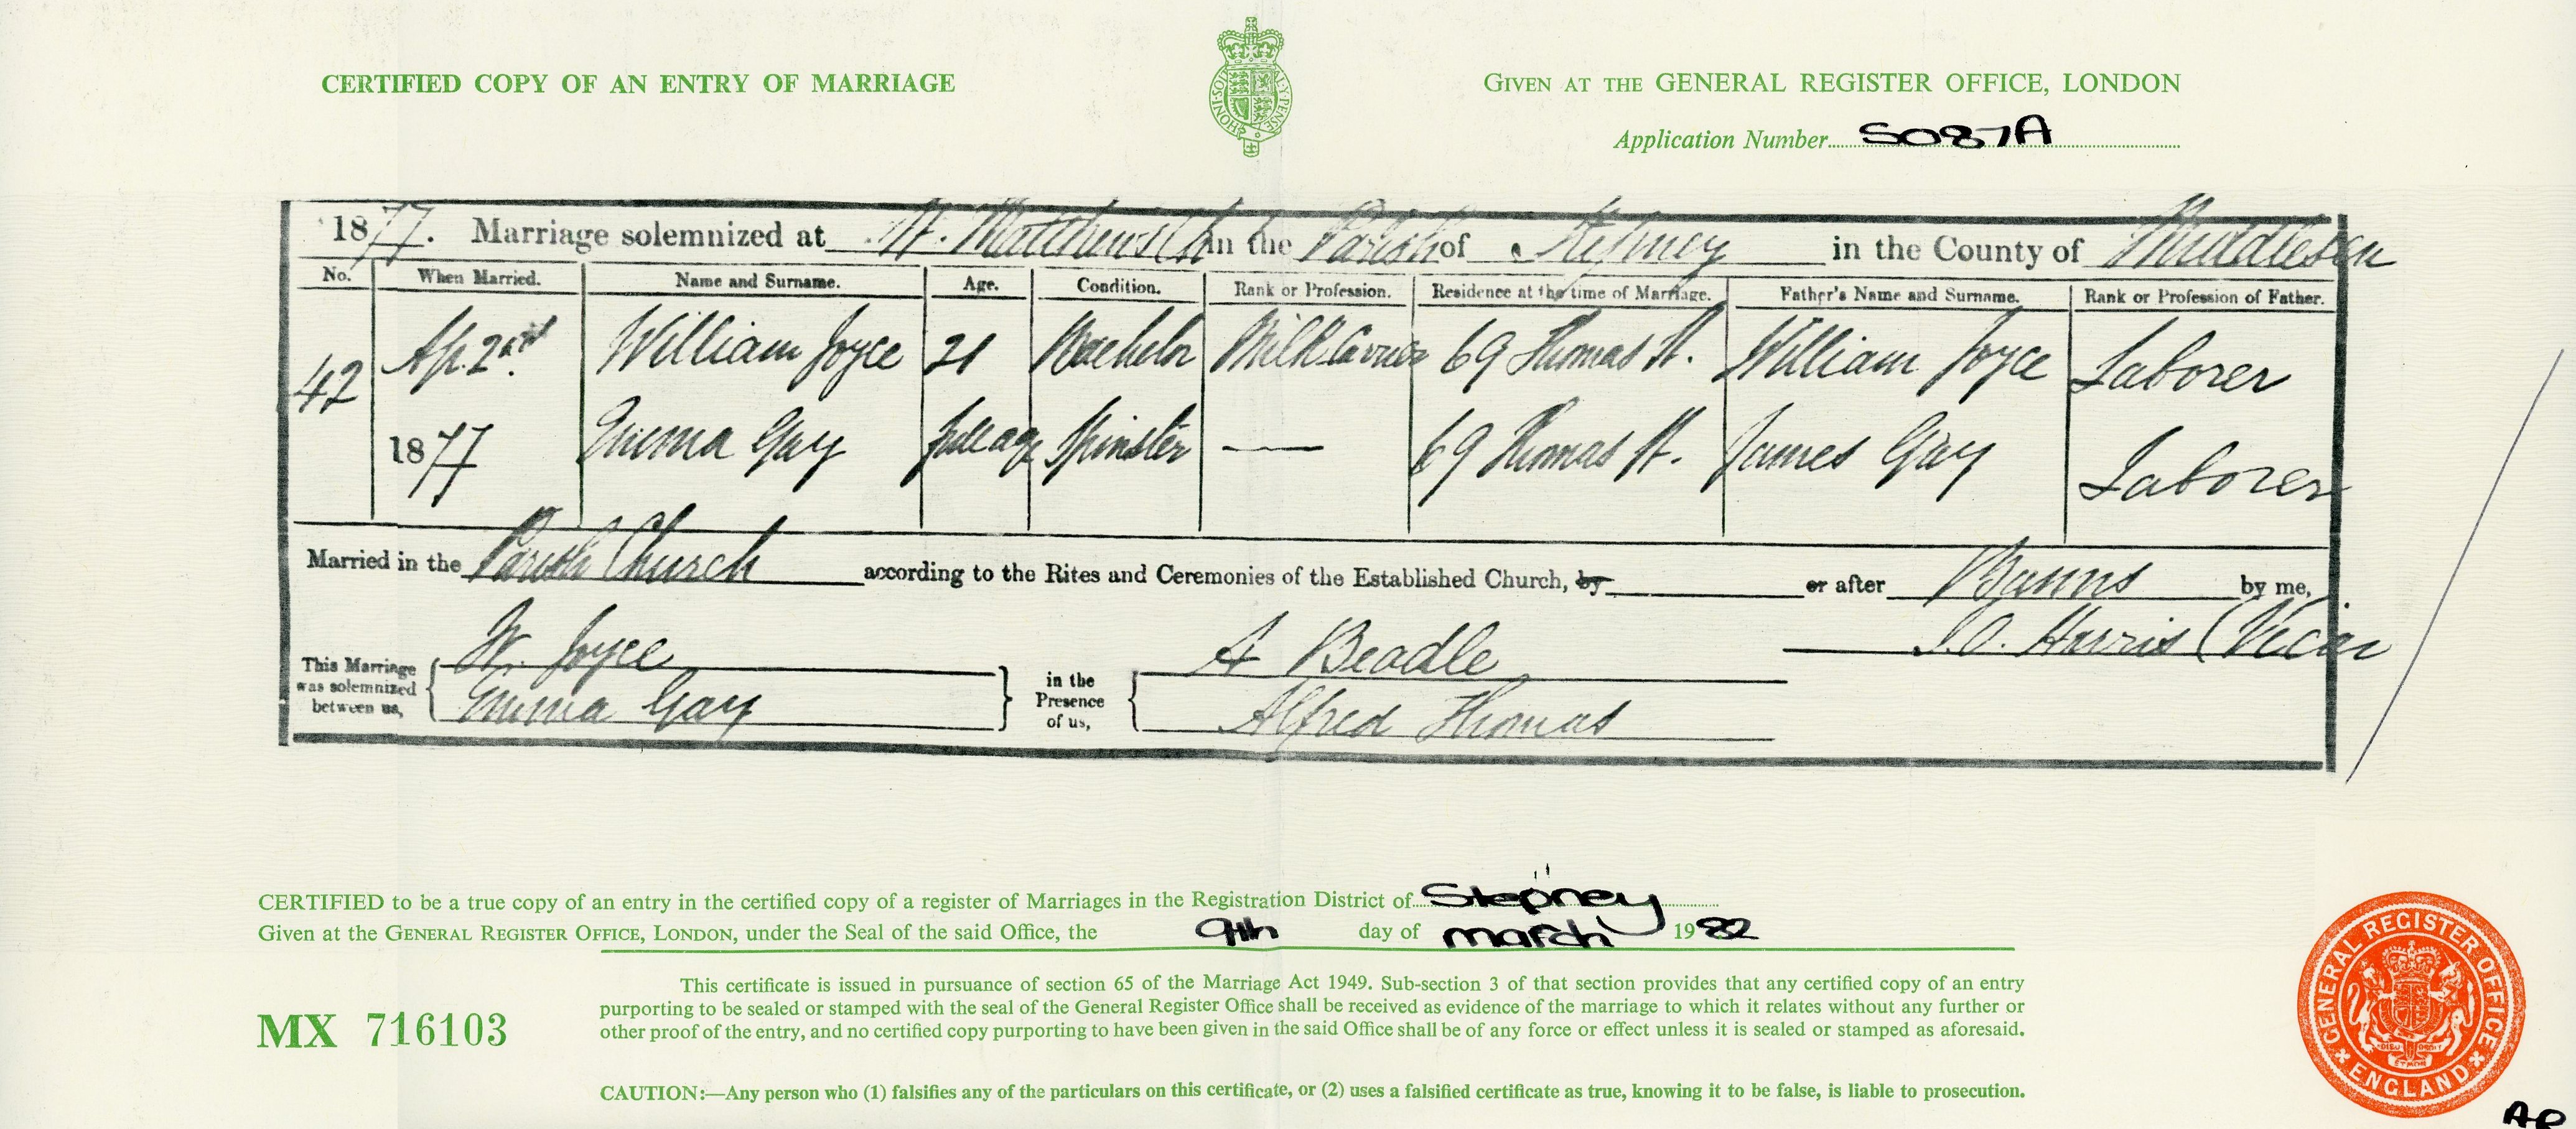 CERTIFIED COPY OF AN ENTRY OF MARRIAGE
GIVEN AT THE GENERAL REGISTER OFFICE, LONDON
Application Number S087A
1877. Marriage solemnized at St. Matthew's Ch in the Parish of Stepney in the County of Middlesex
No. When Married. Name and Surname. Age. Condition. Rank or Profession. Residence at the time of Marriage. Father's Name and Surname. Rank or Profession of Father.
42 Ap. 2nd William Joyce 21 Bachelor Milk Carrier 69 Thomas St. William Joyce Laborer
1877 Emma Gay full age Spinster — 69 Thomas St. James Gay Laborer
Married in the Parish Church according to the Rites and Ceremonies of the Established Church, by or after Banns by me,
This Marriage was solemnized between us, W. Joyce in the Presence of us, A Beadle Harris (Vicar
Emma Gay Alfred Thomas
CERTIFIED to be a true copy of an entry in the certified copy of a register of Marriages in the Registration District of Stepney
Given at the GENERAL REGISTER OFFICE, LONDON, under the Seal of the said Office, the 9th day of march 1982
This certificate is issued in pursuance of section 65 of the Marriage Act 1949. Sub-section 3 of that section provides that any certified copy of an entry
purporting to be sealed or stamped with the seal of the General Register Office shall be received as evidence of the marriage to which it relates without any further or
other proof of the entry, and no certified copy purporting to have been given in the said Office shall be of any force or effect unless it is sealed or stamped as aforesaid.
MX 716103
CAUTION:—Any person who (1) falsifies any of the particulars on this certificate, or (2) uses a falsified certificate as true, knowing it to be false, is liable to prosecution.
GENERAL REGISTER OFFICE ENGLAND